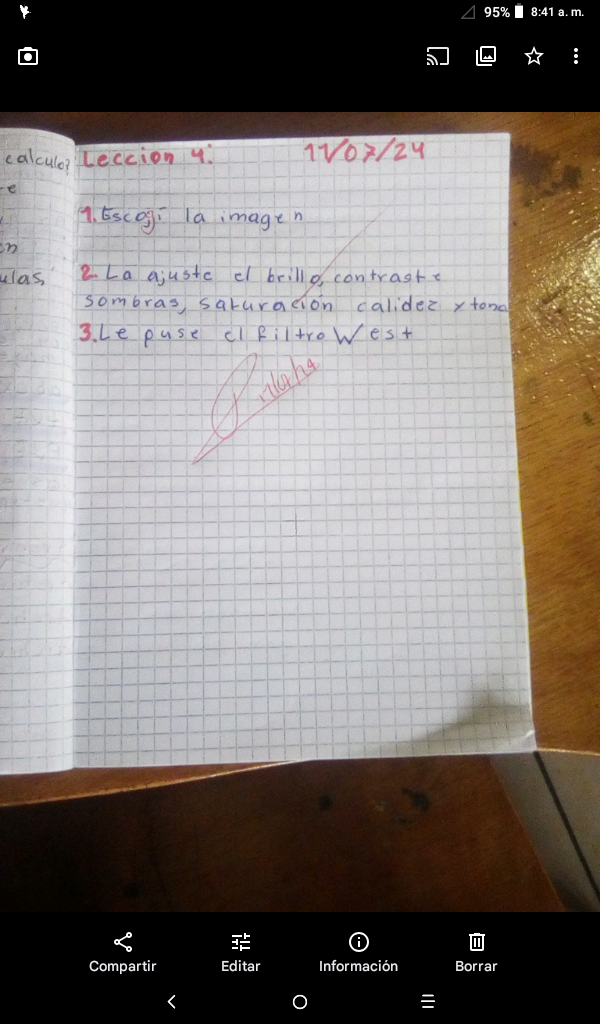 95% 8:41 a. m.
calculo?
Leccion 4:
11/07/24
e
1. Escoji la imagen
en
ulas,
2. La ajuste el brillo, contraste
sombras, saturación calidez y tono
3. Le puse el filtro West
Compartir Editar Información Borrar